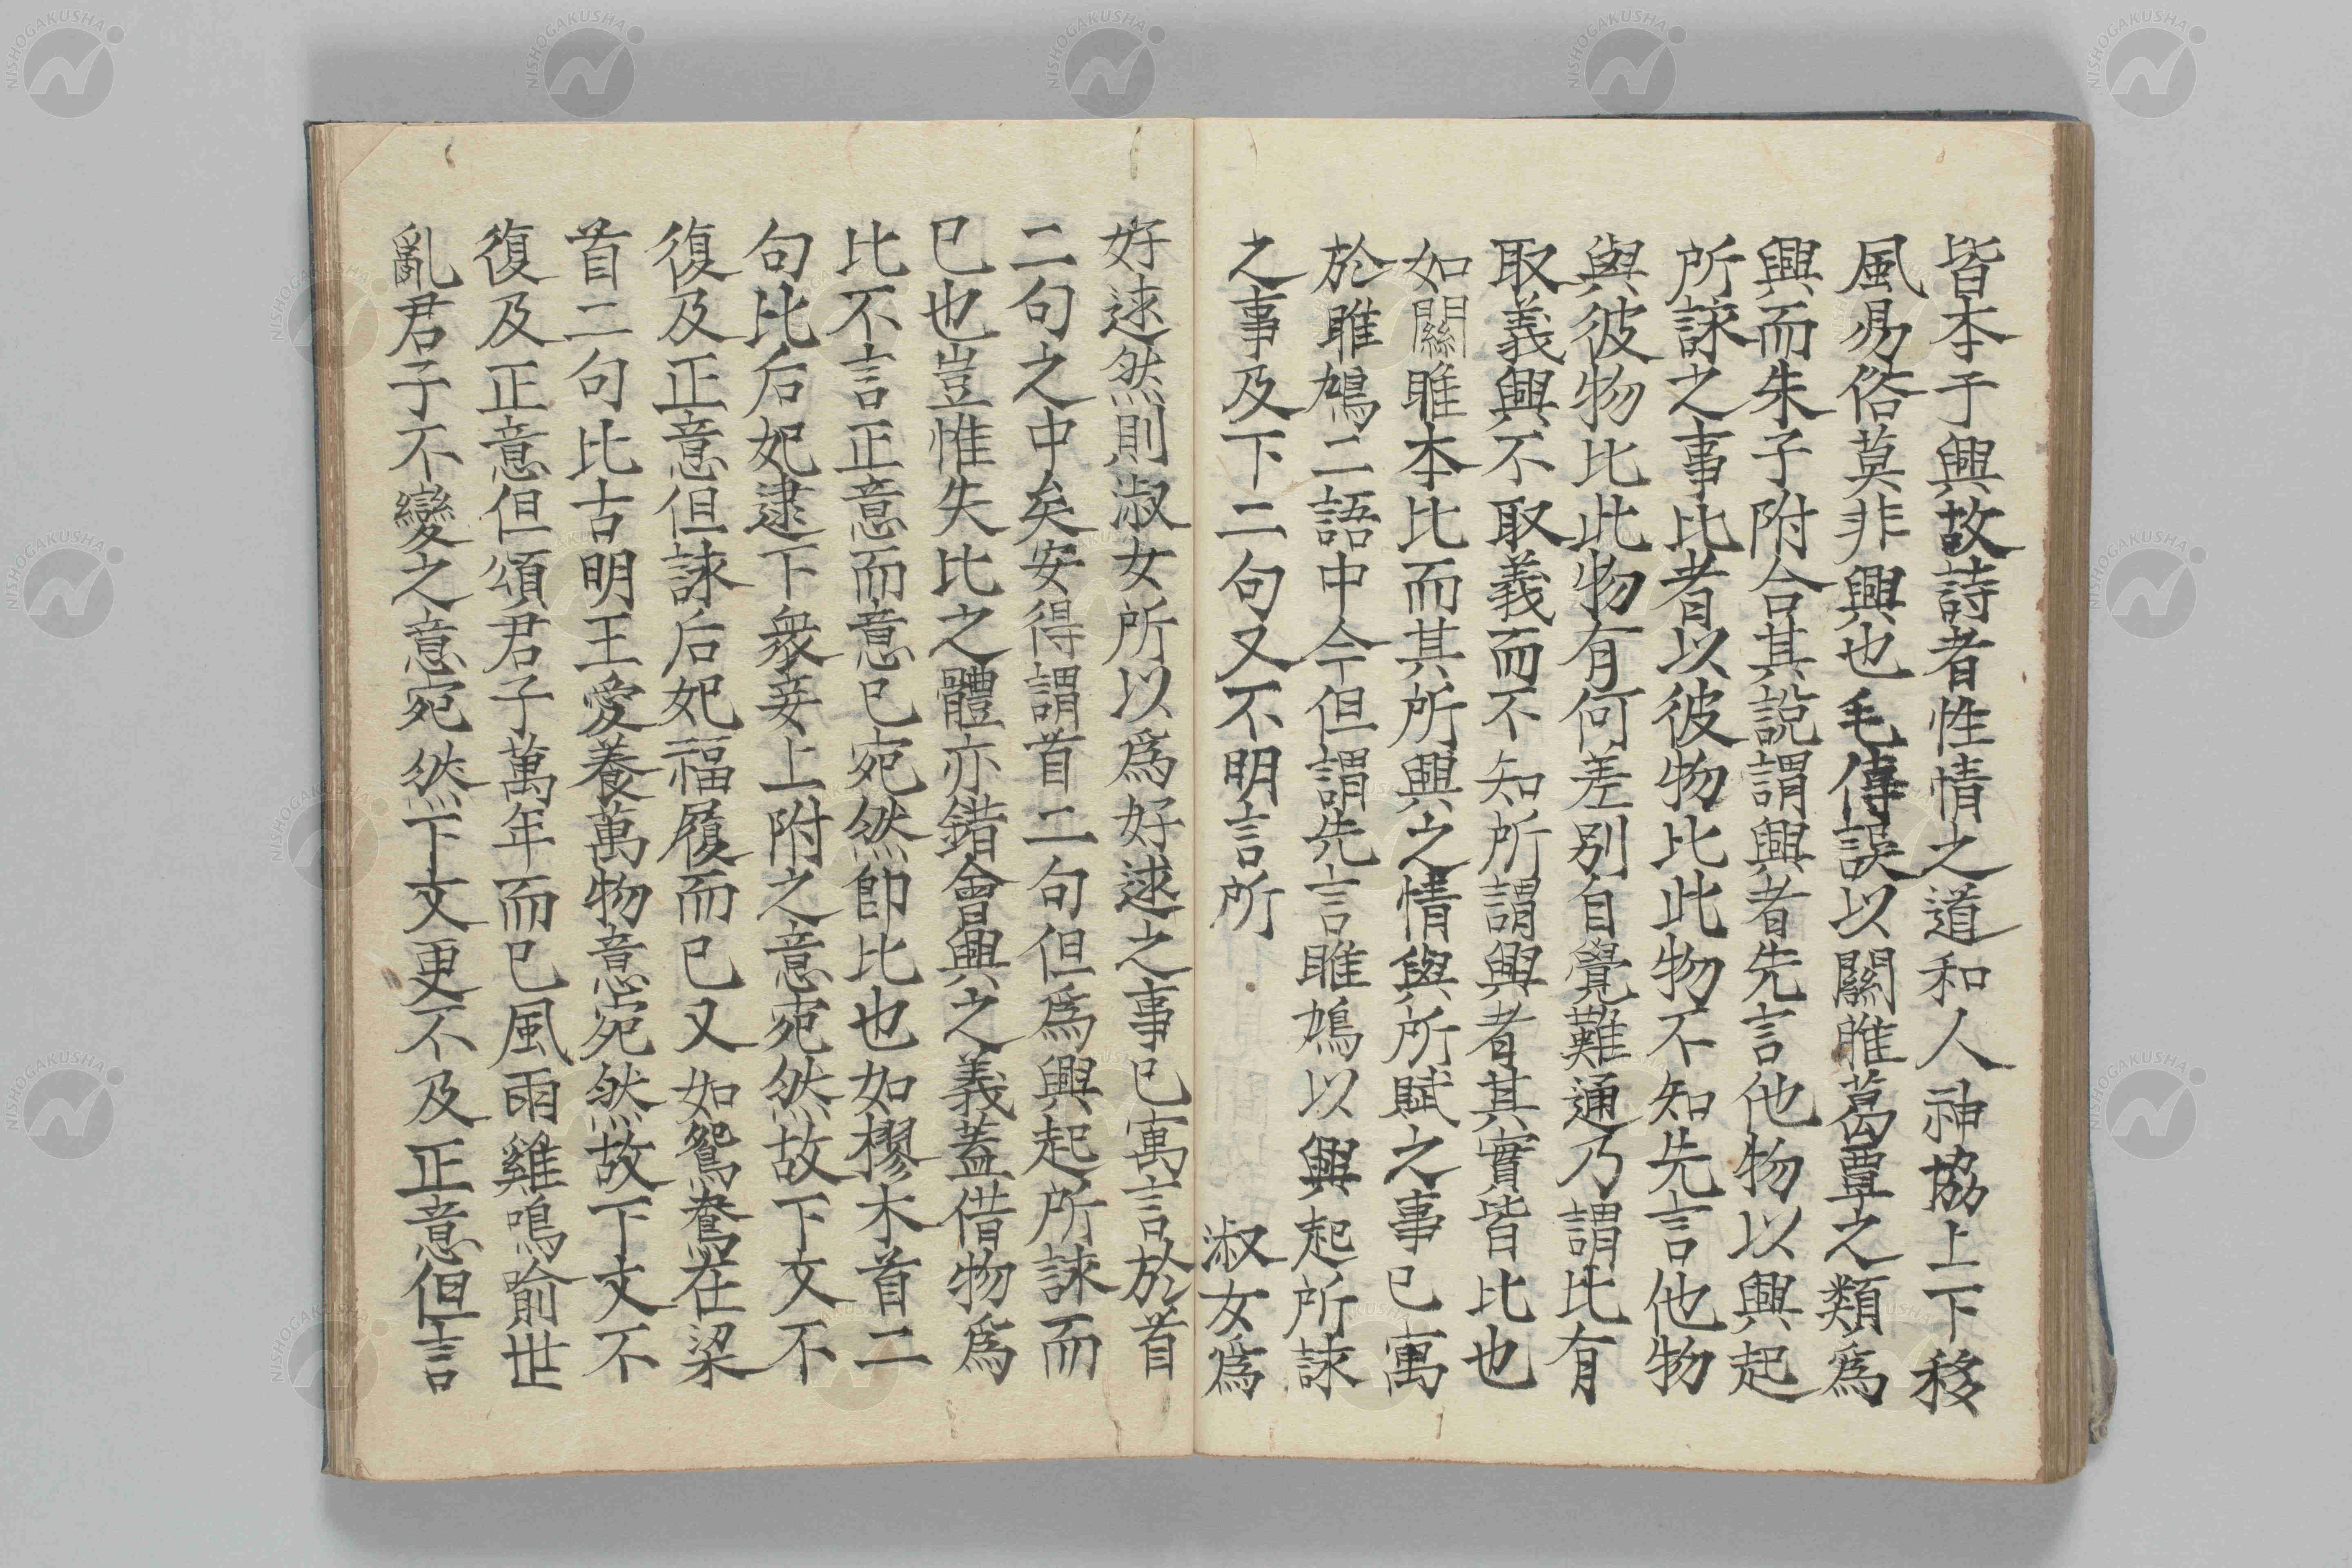 皆本于興故詩者性情之道和人神協上下移
風易俗莫非興也毛傳誤以關雎葛覃之類爲
興而朱子附合其說謂興者先言他物以興起
所詠之事比者以彼物比此物不知先言他物
與彼物比此物有何差別自覺難通乃謂比有
取義興不取義而不知所謂興者其實皆比也
如關雎本比而其所興之情與所賦之事已寓
於雎鳩二語中今但謂先言雎鳩以興起所詠
之事及下二句又不明言所 淑女爲
好逑然則淑女所以爲好逑之事已寓言於首
二句之中矣安得謂首二句但爲興起所詠而
已也豈惟失比之體亦錯會興之義蓋借物爲
比不言正意而意已宛然卽比也如樛木首二
句比后妃逮下衆妾上附之意宛然故下文不
復及正意但詠后妃福履而已又如鴛鴦在梁
首二句比古明王愛養萬物意宛然故下文不
復及正意但頌君子萬年而已風雨雞鳴喻世
亂君子不變之意宛然下文更不及正意但言
NISHOGAKUSHA